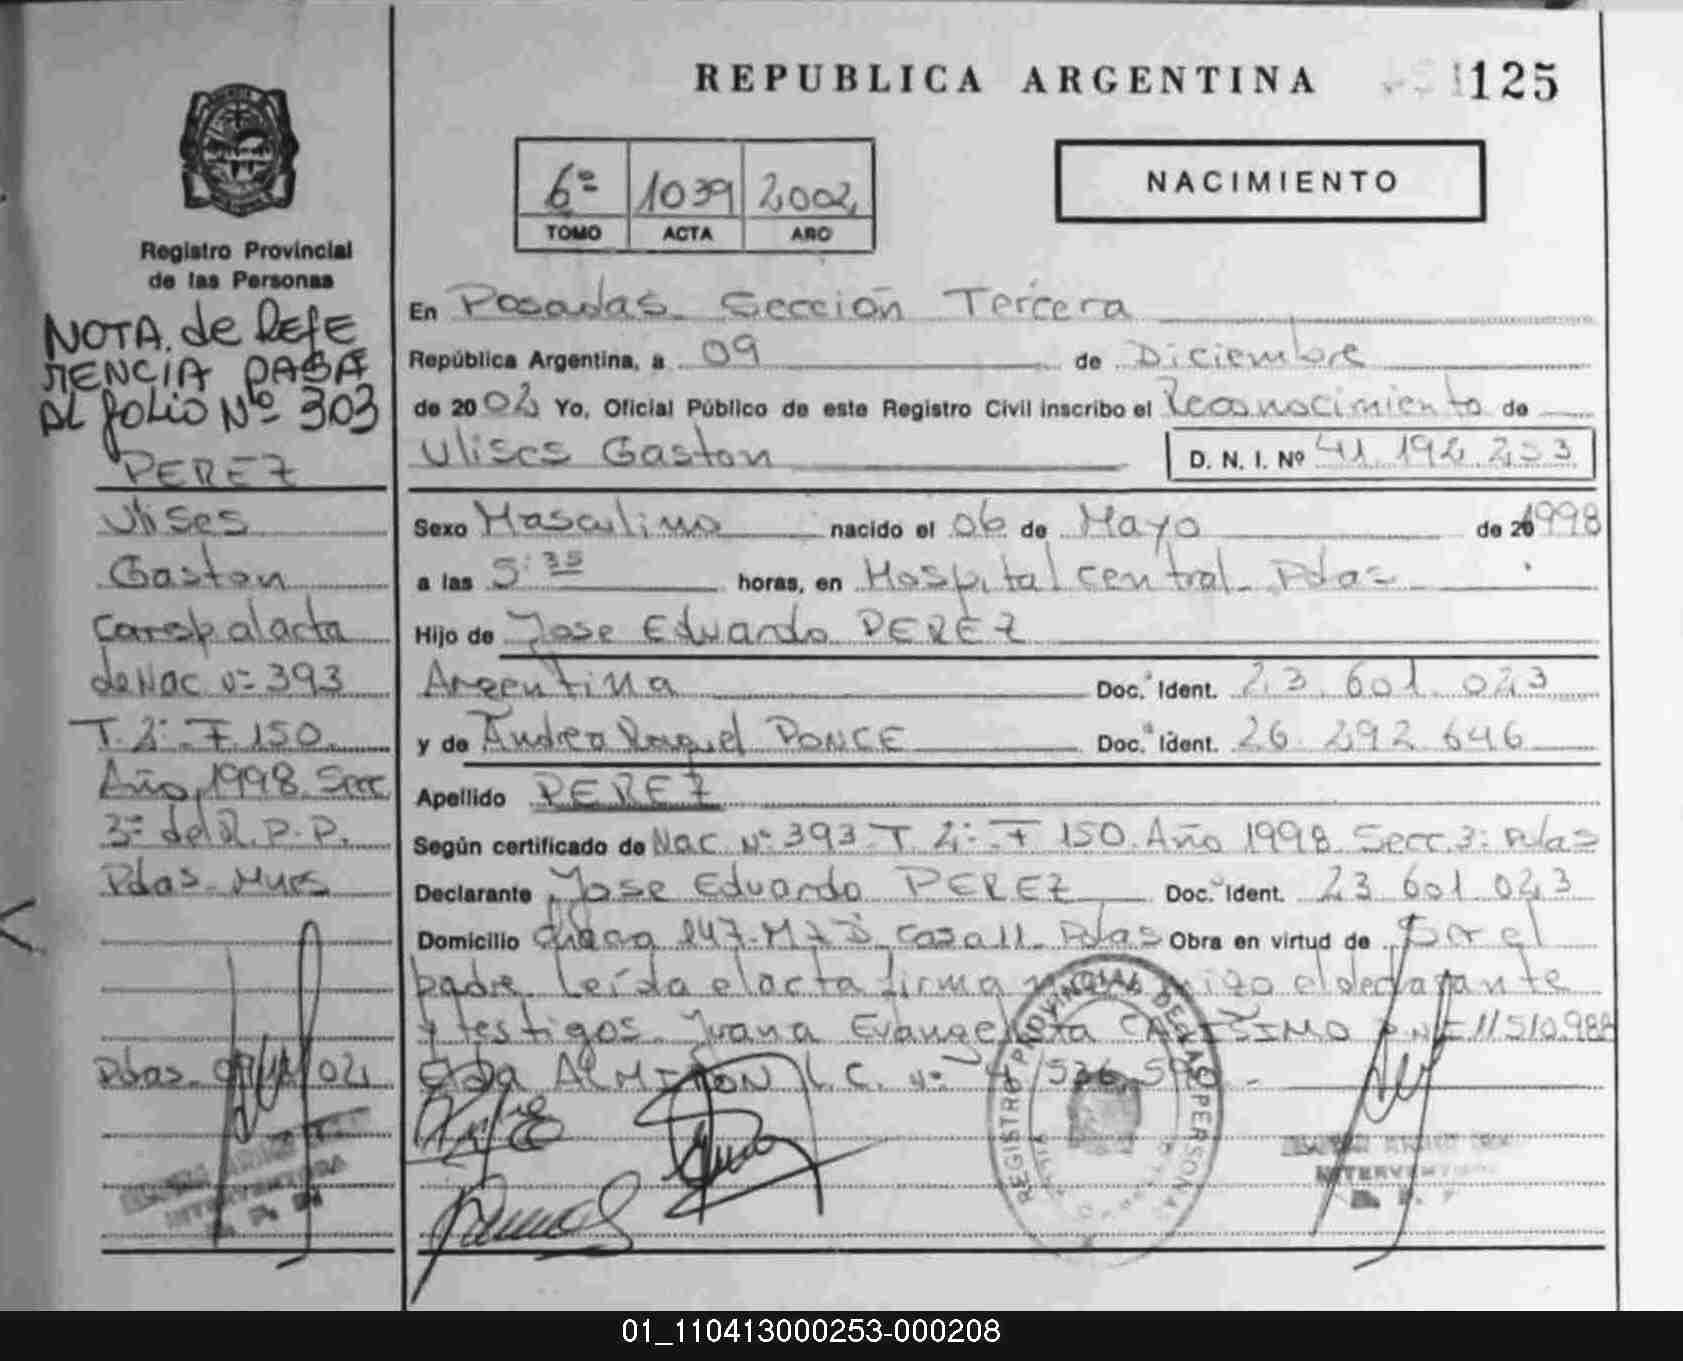 REPUBLICA ARGENTINA 125
6º 1039 2002
TOMO ACTA AÑO
NACIMIENTO
Registro Provincial
de las Personas
NOTA. de REFE
RENCIA PASA
AL FOLIO Nº 303
PEREZ
Ulises
Gaston
Corresp al acta
de Nac nº 393
T. 2º. F. 150.
Año 1998. Secc
3º del R. P. P.
Pdas. Mnes
Pdas. 09/12/02
INTERVENTORA
En Posadas. Sección Tercera
República Argentina, a 09 de Diciembre
de 2002 Yo, Oficial Público de este Registro Civil inscribo el Reconocimiento de
Ulises Gaston D. N. I. Nº 41.192.233
Sexo Masculino nacido el 06 de Mayo de 1998
a las 5:35 horas, en Hospital central. Pdas
Hijo de Jose Eduardo PEREZ
Argentina Doc. Ident. 23.601.023
y de Andrea Raquel PONCE Doc. Ident. 26.292.646
Apellido PEREZ
Según certificado de Nac Nº 393 T. 2º. F 150. Año 1998. Secc. 3º Pdas
Declarante Jose Eduardo PEREZ Doc. Ident. 23.601.023
Domicilio Chacra 247. Casa 11. Pdas Obra en virtud de Ser el
padre. Leída el acta firma conmigo el declarante
y testigos. Juana Evangelista DNI 11.510.988
ALMIRON L. C. nº
REGISTRO PROVINCIAL DE LAS PERSONAS
INTERVENTORA
01_110413000253-000208